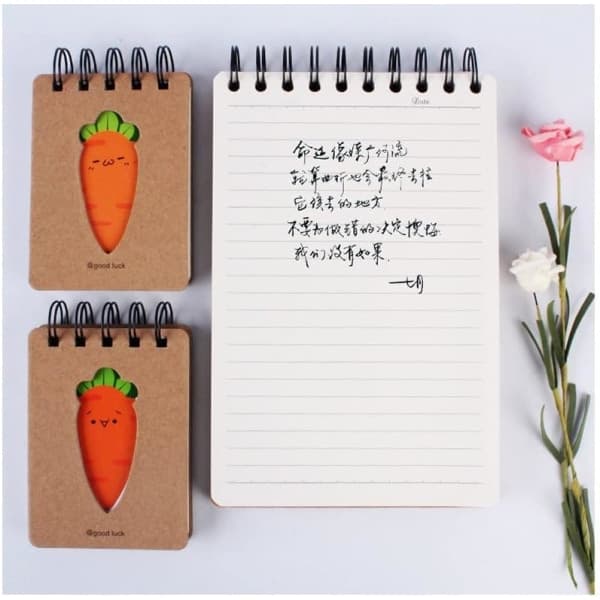 @good luck
@good luck
Date
命运像 河流
就算曲折也会最终去往
应该去的地方
不要为做错的决定懊悔
我们没有如果.
—七月